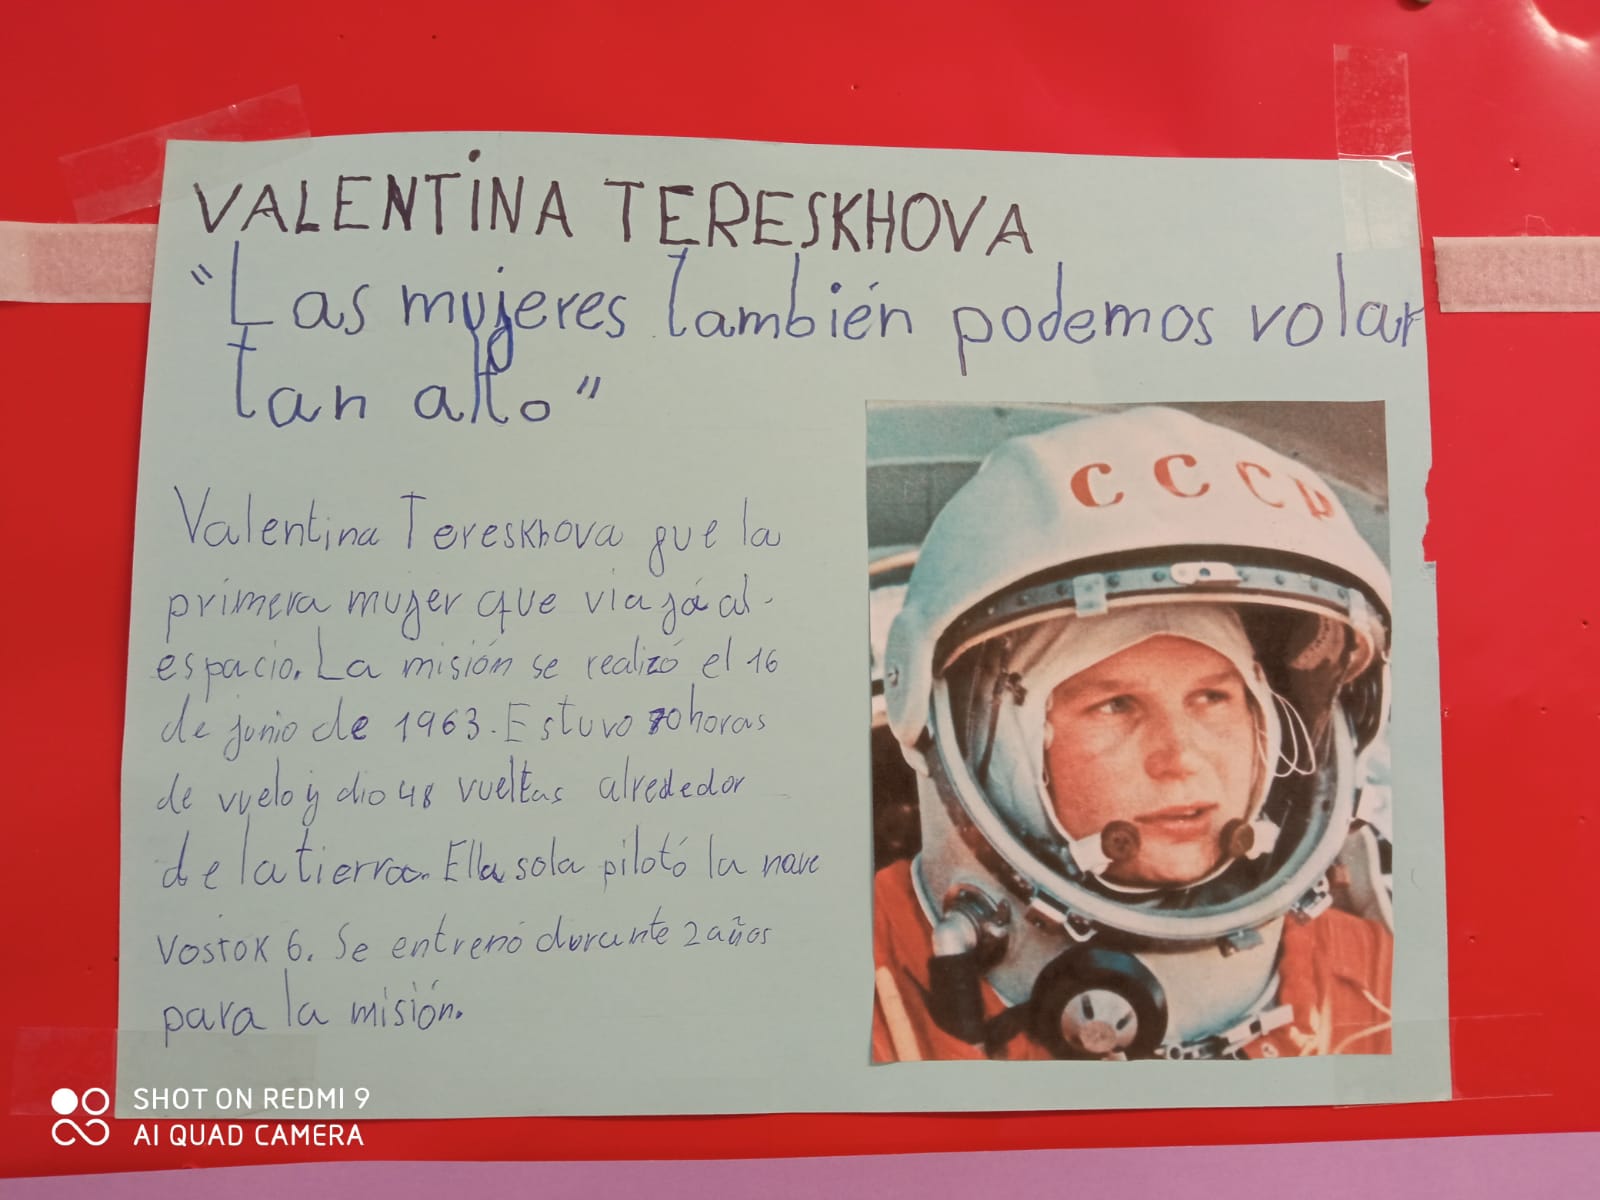 VALENTINA TERESKHOVA
"Las mujeres también podemos volar
tan alto"
Valentina Tereskhova fue la
primera mujer que viajó al
espacio. La misión se realizó el 16
de junio de 1963. Estuvo 70 horas
de vuelo y dio 48 vueltas alrededor
de la tierra. Ella sola pilotó la nave
Vostok 6. Se entrenó durante 2 años
para la misión.
CCCP
SHOT ON REDMI 9
AI QUAD CAMERA